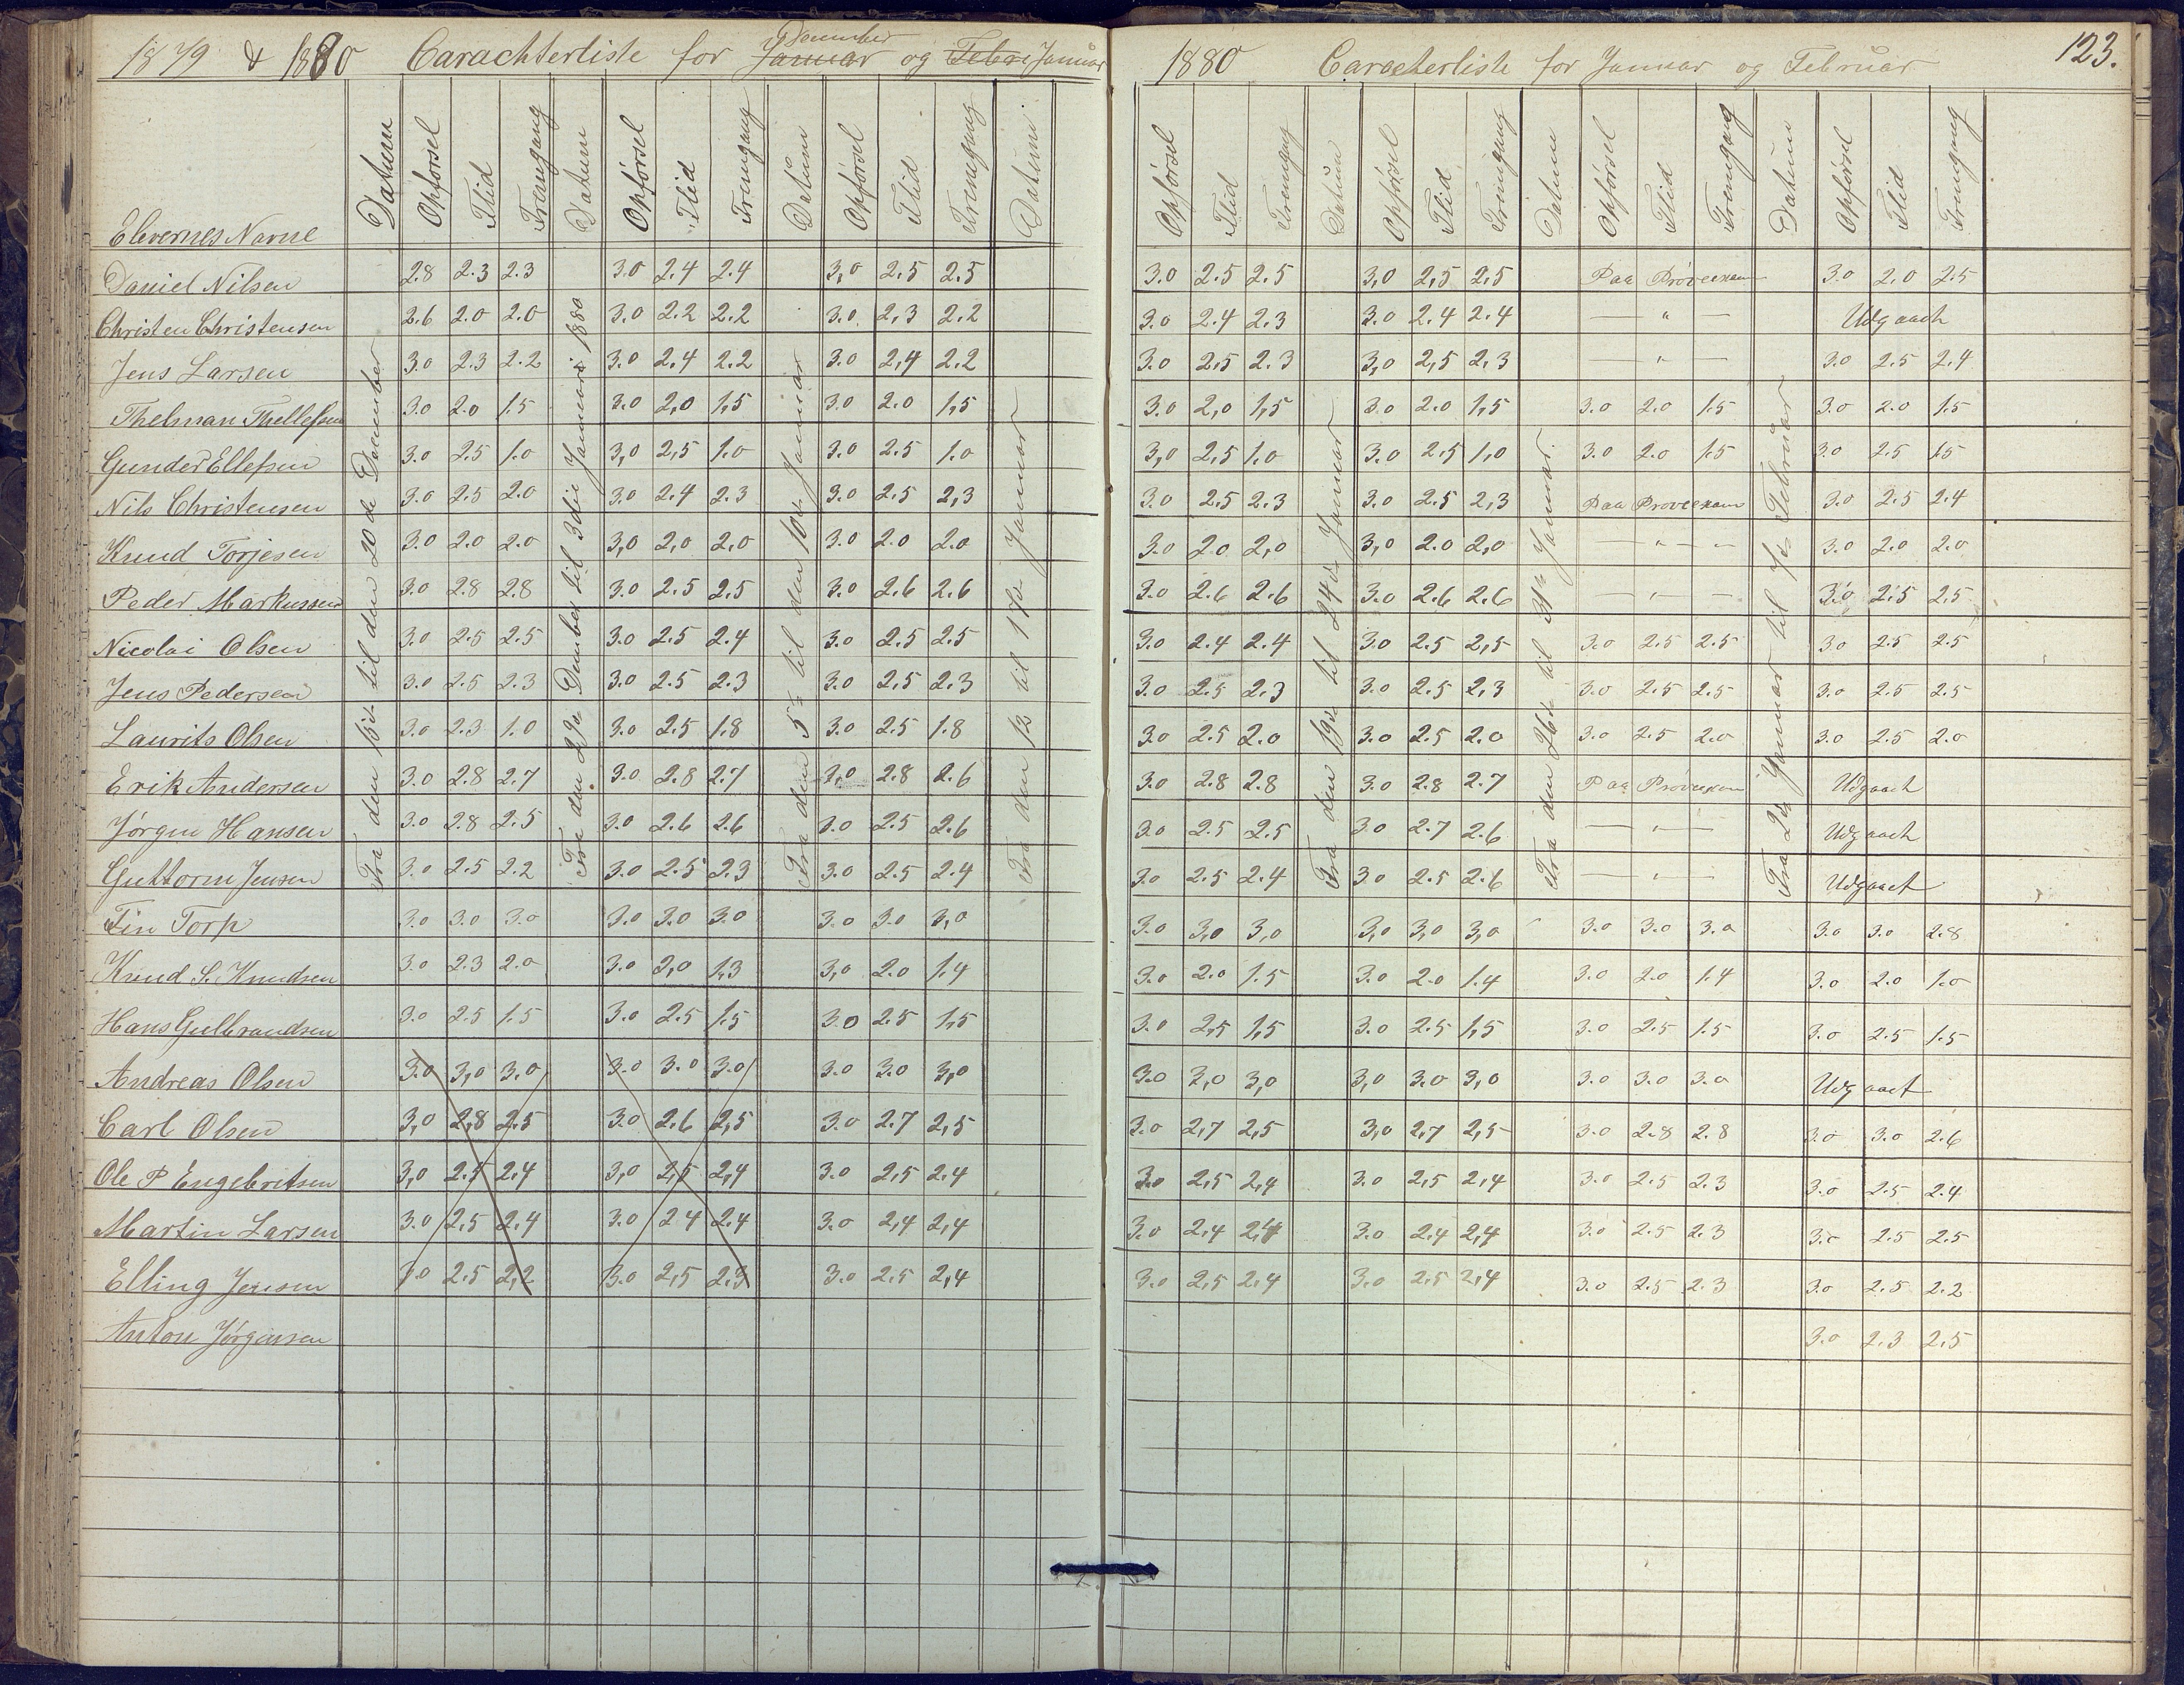 1879 & 1880 Carachterliste for Januar December og Febr Januar
Elevernes Navne Datum Opførsel Flid Fremgang Datum Opførsel Flid Fremgang Datum Opførsel Flid Fremgang Datum
Fra den 15de til den 20de December
Fra den 29de Dember til 3die Januari 1880
Fra den 5te til den 10de Januar
Fra den 12 til 17de Januar
Daniel Nilsen 2.8 2.3 2.3 3.0 2.4 2.4 3,0 2,5 2.5
Christen Christensen 2.6 2.0 2.0 3.0 2.2 2.2 3.0 2,3 2.2
Jens Larsen 3.0 2.3 2.2 3.0 2.4 2.2 3.0 2,4 2.2
Thelman Thellefsen 3.0 2.0 1.5 3.0 2,0 1,5 3.0 2.0 1,5
Gunder Ellefsen 3.0 2.5 1.0 3,0 2,5 1.0 3.0 2.5 1.0
Nils Christensen 3.0 2.5 2.0 3.0 2.4 2.3 3.0 2.5 2,3
Knud Torjesen 3.0 2.0 2.0 3,0 2,0 2,0 3.0 2.0 2.0
Peder Markussen 3.0 2.8 2.8 3.0 2.5 2.5 3.0 2.6 2.6
Nicolai Olsen 3.0 2.5 2.5 3.0 2.5 2.4 3.0 2.5 2.5
Jens Pedersen 3.0 2.5 2.3 3.0 2.5 2.3 3.0 2,5 2.3
Laurits Olsen 3.0 2.3 1.0 3.0 2.5 1.8 3.0 2.5 1.8
Erik Andersen 3.0 2.8 2.7 3.0 2.8 2.7 3.0 2.8 2.6
Jørgen Hansen 3.0 2.8 2.5 3.0 2.6 2.6 3.0 2.5 2.6
Guttorm Jensen 3.0 2.5 2.2 3.0 2.5 2.3 3.0 2.5 2.4
Fin Torp 3.0 3.0 3.0 3.0 3.0 3.0 3.0 3.0 3,0
Knud S. Knudsen 3.0 2.3 2.0 3.0 2,0 1,3 3,0 2.0 1.4
Hans Gulbrandsen 3.0 2.5 1.5 3.0 2.5 1.5 3.0 2.5 1,5
Andreas Olsen 3.0 3,0 3.0 3.0 3.0 3.0 3.0 3.0 3,0
Carl Olsen 3,0 2,8 2.5 3.0 2.6 2,5 3.0 2.7 2,5
Ole P Engebritsen 3,0 2.5 2.4 3,0 2,5 2,4 3.0 2,5 2.4
Martin Larsen 3.0 2,5 2,4 3.0 2 4 2,4 3.0 2,4 2,4
Elling Jensen 3.0 2.5 2,2 3.0 2,5 2.3 3.0 2.5 2,4
Anton Jørgensen
1880 Caracterliste for Januar og Februar 123.
Opførsel Flid Fremgang Datum Opførsel Flid Fremgang Datum Opførsel Flid Fremgang Datum Opførsel Flid Fremgang
Fra den 19de til 24de Januar
Fra den 26de til 31te Januar.
Fra Januar til 7de Februar
3.0 2.5 2.5 3,0 2,5 2,5 Paa Prøveexam 3.0 2.0 2.5
3.0 2.4 2.3 3.0 2.4 2.4 — " — Udgaaet
3.0 2,5 2.3 3,0 2,5 2,3 — " — 3.0 2.5 2.4
3.0 2,0 1,5 3.0 2.0 1,5 3.0 2.0 1.5 3.0 2.0 1.5
3,0 2,5 1.0 3.0 2,5 1,0 3.0 2.0 1.5 3.0 2.5 1.5
3.0 2,5 2.3 3.0 2.5 2,3 Paa Prøveexam 3.0 2.5 2.4
3.0 2.0 2,0 3,0 2.0 2,0 — " — 3.0 2.0 2.0
3.0 2.6 2.6 3.0 2.6 2.6 — " — 3.0 2.5 2.5
3.0 2.4 2.4 3.0 2.5 2,5 3.0 2.5 2.5 3.0 2.5 2.5
3.0 2.5 2.3 3.0 2.5 2,3 3.0 2.5 2.5 3.0 2.5 2.5
3.0 2.5 2.0 3.0 2.5 2.0 3.0 2.5 2.0 3.0 2.5 2.0
3.0 2.8 2.8 3.0 2.8 2.7 Paa Prøveexam Udgaaet
3.0 2.5 2.5 3.0 2.7 2.6 — " — Udgaaet
3.0 2.5 2.4 3.0 2.5 2.6 — " — Udgaaet
3.0 3,0 3,0 3,0 3,0 3,0 3.0 3.0 3.0 3.0 3.0 2.8
3.0 2.0 1.5 3.0 2.0 1.4 3.0 2.0 1.4 3.0 2.0 1.0
3.0 2,5 1,5 3.0 2.5 1,5 3.0 2.5 1.5 3.0 2.5 1.5
3.0 3,0 3,0 3,0 3.0 3,0 3.0 3.0 3.0 Udgaaet
3.0 2,7 2,5 3,0 2,7 2,5 3.0 2.8 2.8 3.0 3.0 2.6
3.0 2,5 2,4 3.0 2,5 2,4 3.0 2.5 2.3 3.0 2.5 2.4
3.0 2,4 2,4 3.0 2,4 2,4 3.0 2.5 2.3 3.0 2.5 2.5
3.0 2,5 2,4 3.0 2,5 2,4 3.0 2.5 2.3 3.0 2.5 2.2
3.0 2.3 2.5